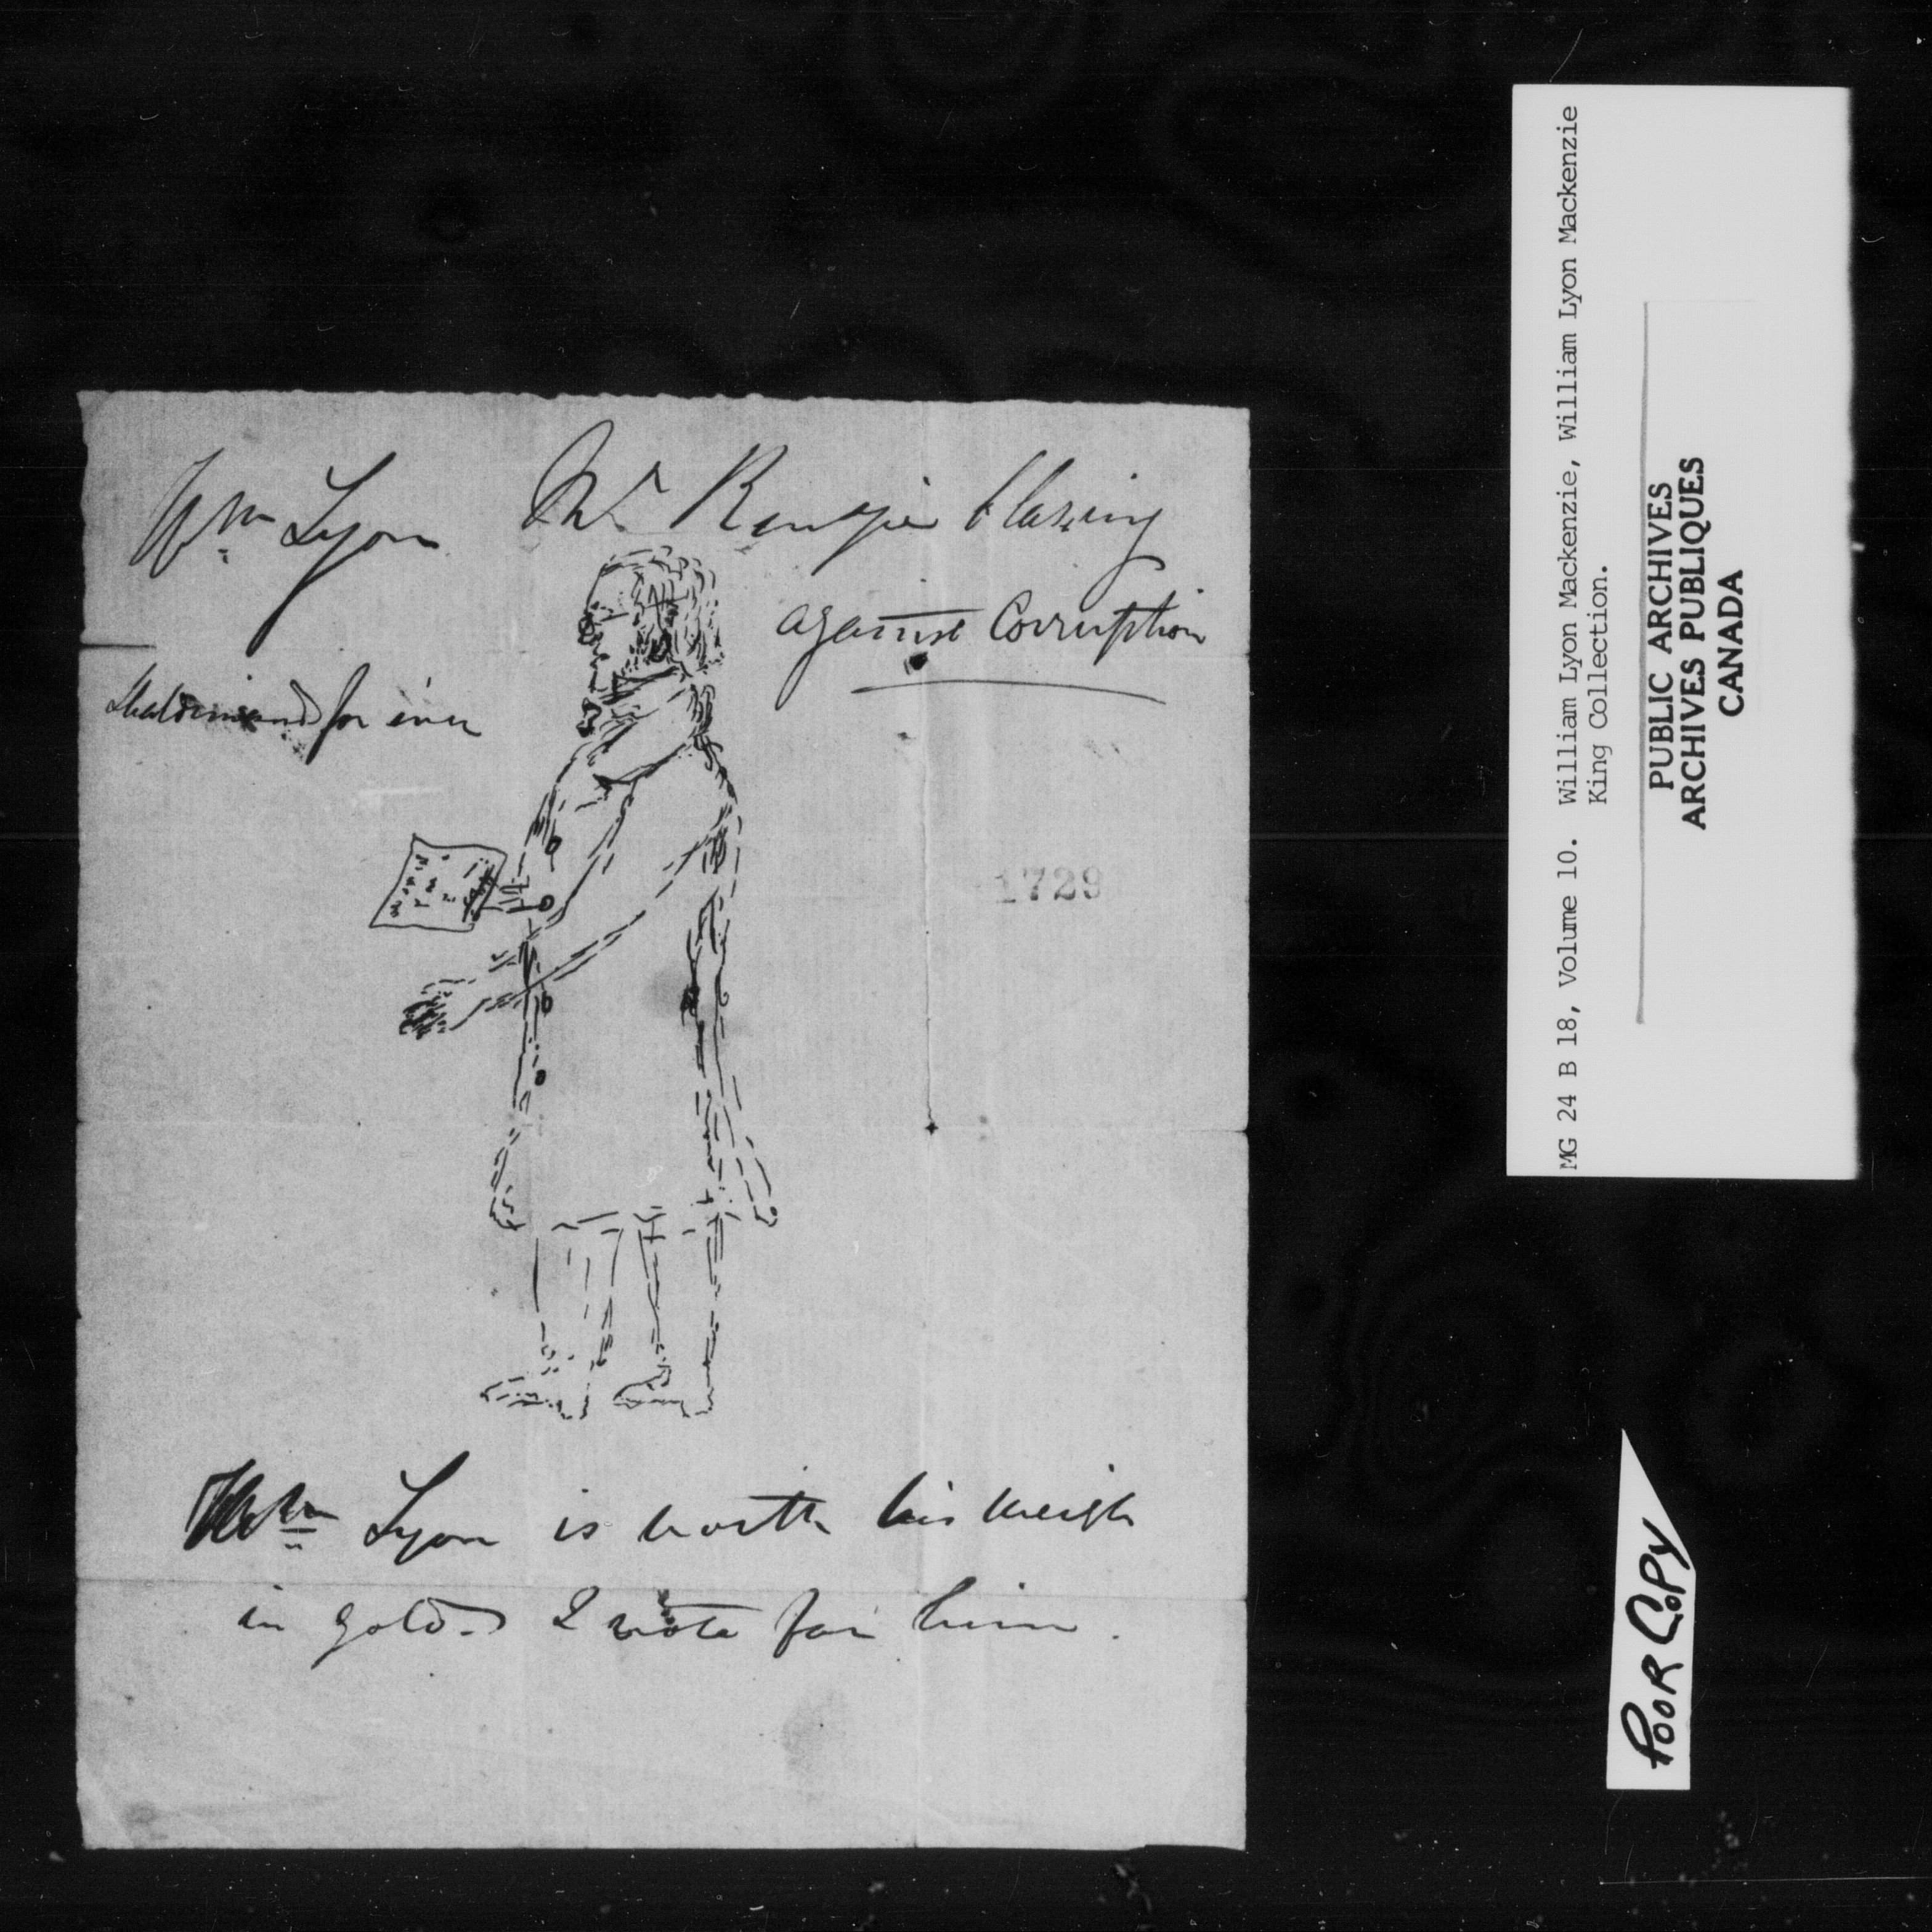 Wm Lyon Mc Kenzie blazing
against Corruption
Haldimand for ever
1729
Wm Lyon is worth his weigh
in gold. I vote for him.
MG 24 B 18, Volume 10. William Lyon Mackenzie, William Lyon Mackenzie
King Collection.
PUBLIC ARCHIVES
ARCHIVES PUBLIQUES
CANADA
POOR COPY